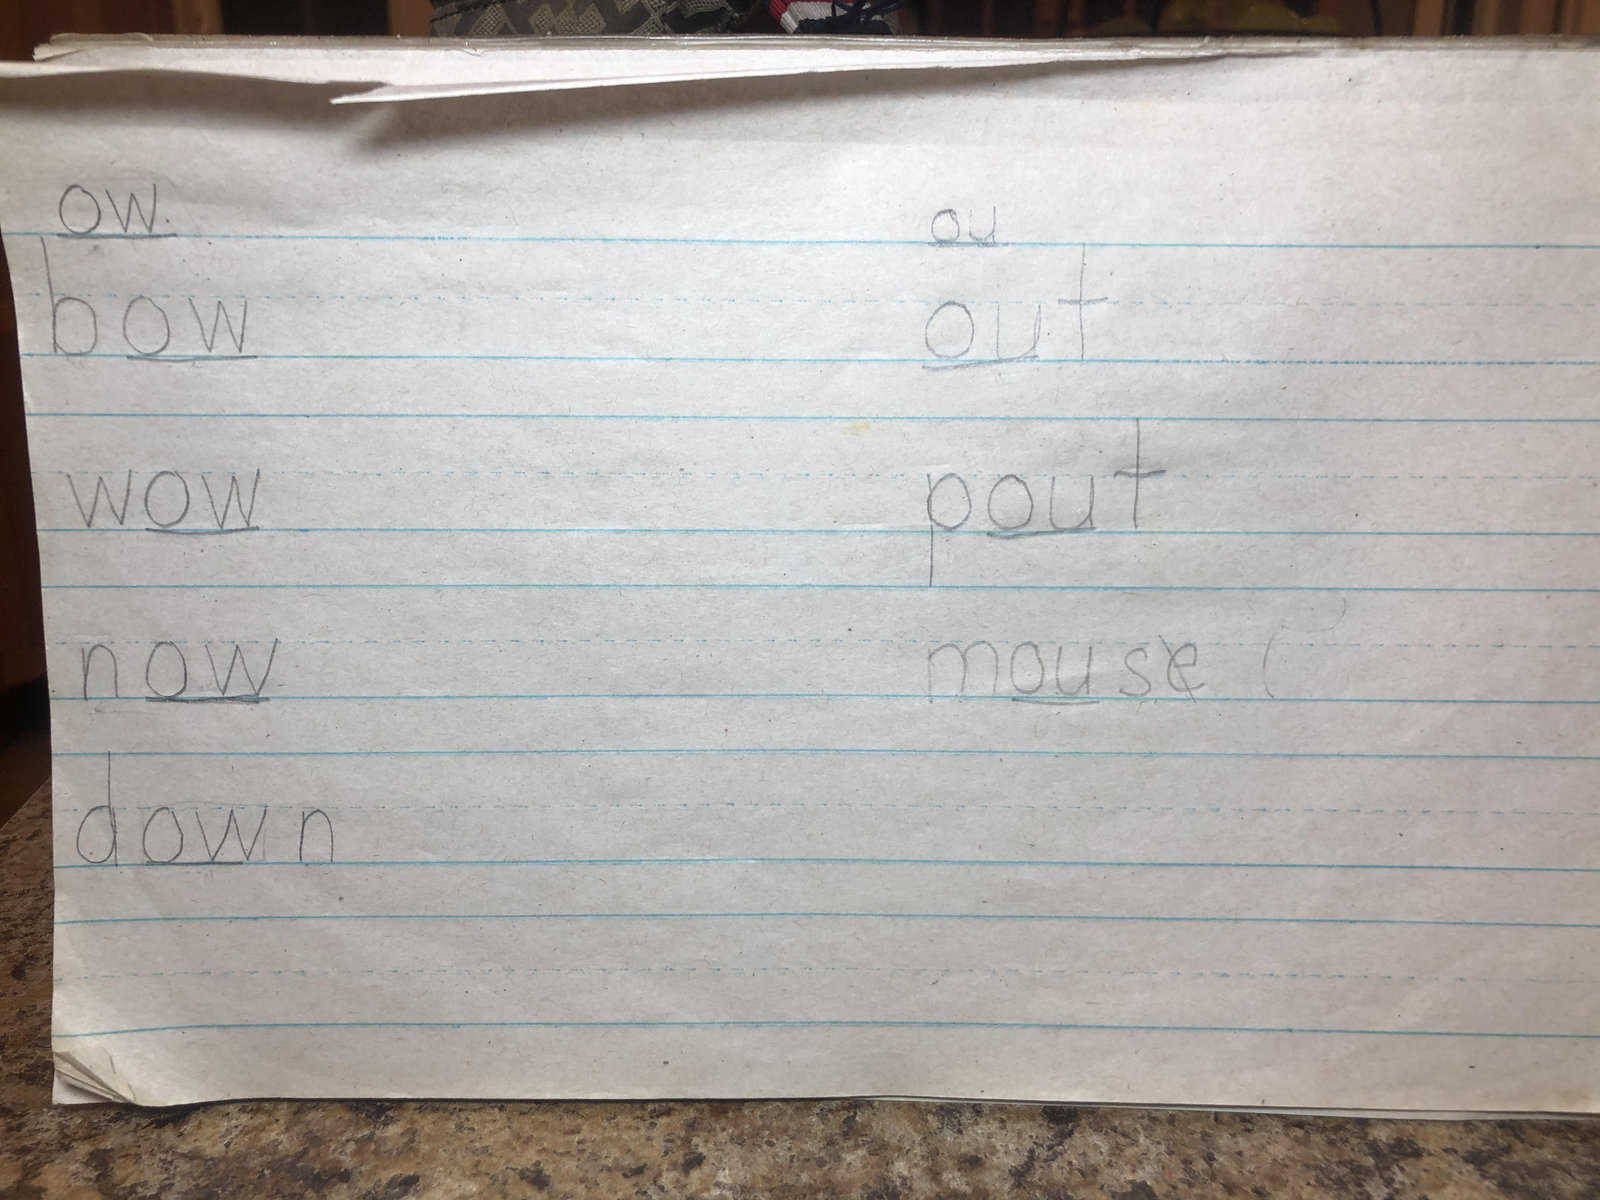 ow
bow
wow
now
down
ou
out
pout
mouse